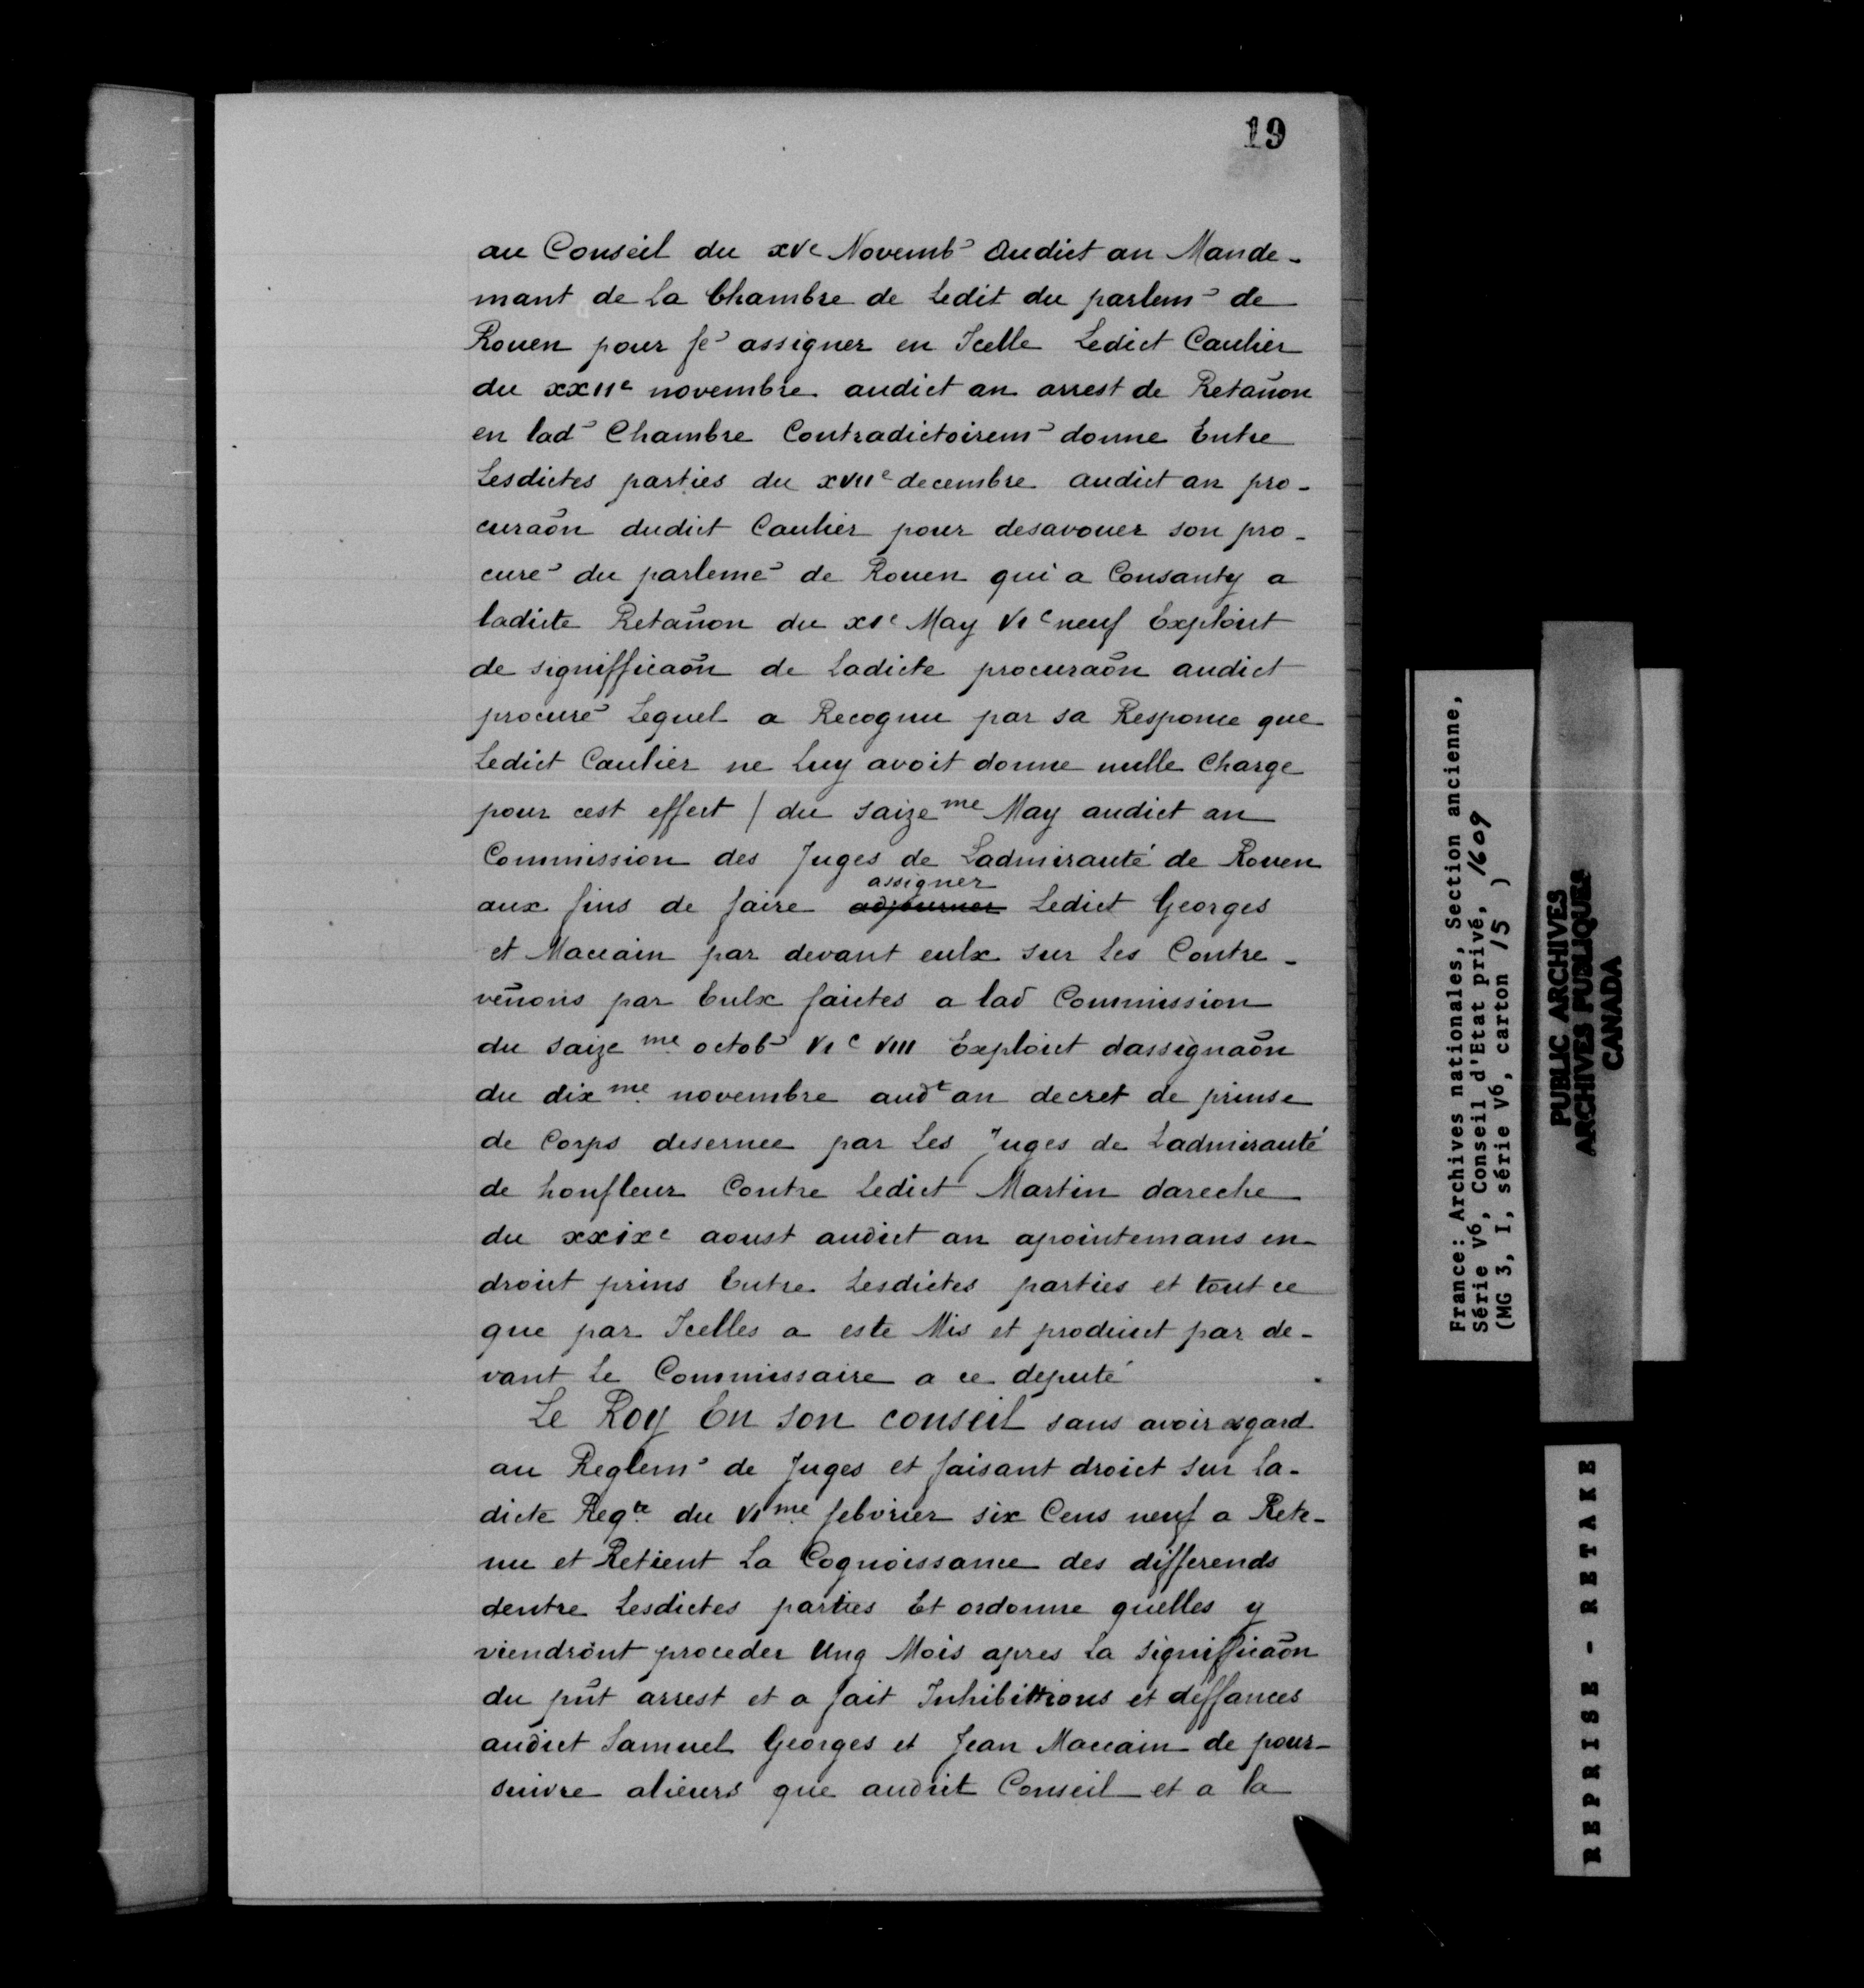 19
au Conseil du xve Novembˀ audict an Mande-
mant de La Chambre de Ledit du parlemˀ de
Rouen pour feˀ assigner en Icelle Ledict Caulier
du xxiie novembre audict an arrest de Retañon
en ladˀ Chambre Contradictoiremˀ donne Entre
Lesdictes parties du xviie decembre audict an pro-
curaõn dudict Caulier pour desavouer son pro-
cureˀ du parlemeˀ de Rouen qui a Consanty a
ladicte Retañon du xie May vic neuf Exploict
de signifficaõn de Ladicte procuraõn audict
procureˀ Lequel a Recognu par sa Response que
Ledict Caulier ne Luy avoit donne nulle Charge
pour cest effect / du saizeme May audict an
Commission des Juges de Ladmirauté de Rouen
assigner
aux fins de faire adjourner Ledict Georges
et Macain par devant eulx sur Les Contre-
veñons par Eulx faictes a lad Commission
du saizeme octobˀ vic viii Exploict dassignaõn
du dixme novembre audt an decret de prinse
de Corps desernee par Les Juges de Ladmirauté
de honfleur Contre Ledict Martin dareche
du xxixe aoust audict an apointemans en
droict prins Entre Lesdictes parties et tout ce
que par Icelles a este Mis et produict par de-
vant Le Commissaire a ce deputé
Le Roy En son conseil sans avoir esgard
au Reglemˀ de Juges et faisant droict sur la-
dicte Reqte du vime febvrier six Cens neuf a Rete-
nu et Retient La Cognoissance des differends
dentre Lesdictes parties Et ordonne quelles y
viendront proceder Ung Mois apres La signifficaõn
du pñt arrest et a fait Inhibittions et deffances
audict Samuel Georges et Jean Macain de pour-
suivre alieurs que audict Conseil et a la
France: Archives nationales, Section ancienne,
Série V6, Conseil d'Etat privé, 1609
(MG 3, I, série V6, carton 15 )
PUBLIC ARCHIVES
ARCHIVES PUBLIQUES
CANADA
REPRISE - RETAKE